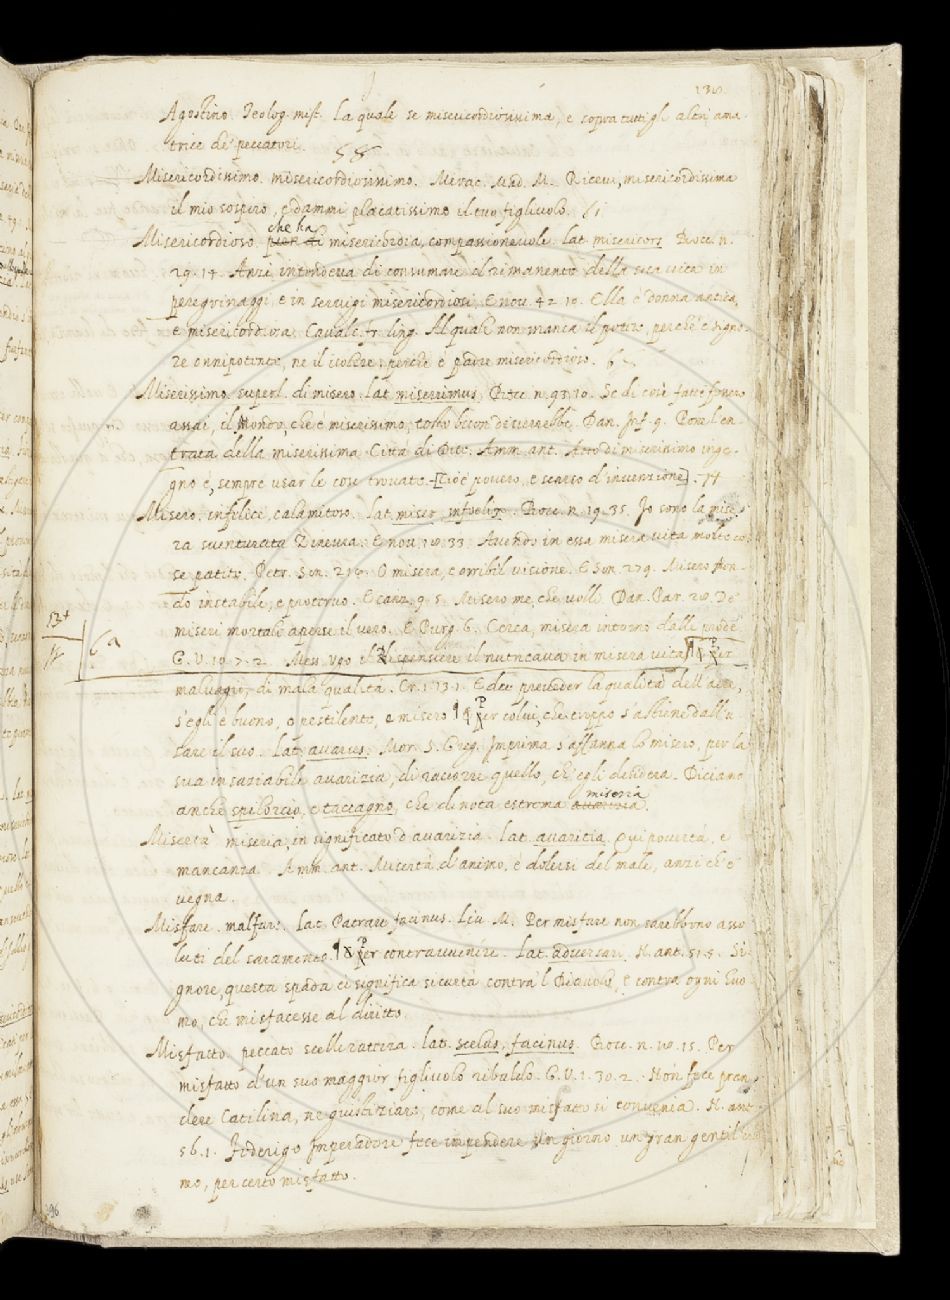 Agostino Teolog. mist. La quale se misericordiosissima, e sopra tutti gl' altri ama-
trice de' peccatori.
58
Misericordissimo. misericordiosissimo. Mirac. Mad. M. Ricevi, misericordissima
il mio sospiro, e dammi placatissimo il tuo figlivolo. 61
che ha
Misericordioso. misericordia, compassionevole. Lat. misericors Bocc. n.
29. 14. Anzi intendeva di consumare il rimanente della sua vita in
peregrinaggi, e in servigi misericordiosi. E nov. 42. 10. Ella è donna antica,
e misericordiosa. Cavalc. fr. ling. Al quale non manca il potere, perchè è signo-
re onnipotente, ne il volere; perchè è padre misericordioso.
Miserissimo. superl. di misero. lat. miserrimus. Bocc. n. 93. 10. Se di così fatte fossero
assai, il Mondo, che è miserissimo, tosto buon diverrebbe. Dan. Inf. 9. Pone l'en-
trata della miserissima Città di Dite. Amm. ant. Atto di miserissimo inge-
gno è, sempre usar le cose trovate. [cioè povero, e scarso d'invenzione]. 74
Misero. infelice, calamitoso. Lat. miser, infoelix. Bocc. n. 19. 35. Io sono la mise-
ra sventurata Zinevra. E nov. 18. 33. Avendo in essa misera vita molte co-
se patite. Petr. Son. 216. O misera, e orribil visione. E Son. 279. Misero Mon-
do instabile, e protervo. E canz. 9. 5. Misero me, che volli. Dan. Par. 28. De'
miseri mortali aperse il vero. E Purg. 6. Cerca, misera intorno dalle prode
G. V. 10. 7. 2. Mess. Ugo il Dispensiere il nutricava in misera vita ¶ Per
malvagio, di mala qualità. Cr. 1. 3. 1. E dee preceder la qualità dell' aere,
s'egli è buono, o pestilente, e misero ¶ Per colui, che troppo s'astiene dall' u-
sare il suo. Lat. avarus. Mor. S. Greg. Imprima s'affanna lo misero, per la
sua insaziabile avarizia, di raccorre quello, ch' egli desidera. Diciamo
miseria
anche spilorcio, e taccagno, che dinota estrema avarizia.
Misertà miseria, in significato d'avarizia. Lat. avaritia. Qui povertà, e
mancanza. Amm. ant. Misertà d'animo, è dolersi del male, anzi ch' e'
vegna.
Misfare. malfare. Lat. Patrare facinus. Liv. M. Per misfare non sarebbono asso-
luti del saramento. ¶ Per contravvenire. Lat. adversari. N. ant. 51. 5. Si-
gnore, questa spada ci significa sicurtà contra 'l Diavolo, e contra ogni huo-
mo, che misfacesse al diritto.
Misfatto. peccato scelleratezza. Lat. scelus, facinus. Bocc. n. 18. 15. Per
misfatto d'un suo maggior figlivolo ribaldo. G. V. 1. 30. 2. Non fece pren-
dere Catilina, ne giustiziare, come al suo misfatto si convenia. N. ant.
56. 1. Federigo Imperadore fece impendere un giorno un gran gentil huo-
mo, per certo misfatto.